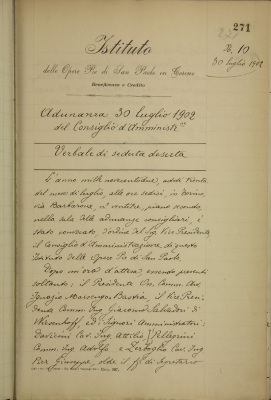 271
N. 10
30 luglio 1902
Istituto
delle Opere Pie di San Paolo in Torino
Beneficenza e Credito
Adunanza 30 luglio 1902
del Consiglio d'Amministr.ne
Verbale di seduta deserta
L'anno mille novecentodue, addì trenta
del mese di luglio, alle ore sedici, in Torino,
via Barbaroux, piano secondo,
nella sala delle adunanze consigliari, è
stato convocato d'ordine del Sig. Vice Presidente
il Consiglio d'Amministrazione di questo
Istituto delle Opere Pie di San Paolo.
Dopo un'ora d'attesa, essendo presenti
soltanto, il Presidente Comm. Avv.
Ignazio Marsengo Bastia, il Vice Presi-
dente Comm. Ing. Giacomo
ed i Signori Amministratori:
Cav. Ing. Attilio, Pellegrini
Comm. Ing. Adolfo e Cav. Ing.
Pier Giuseppe, oltre il ff. di Segretario